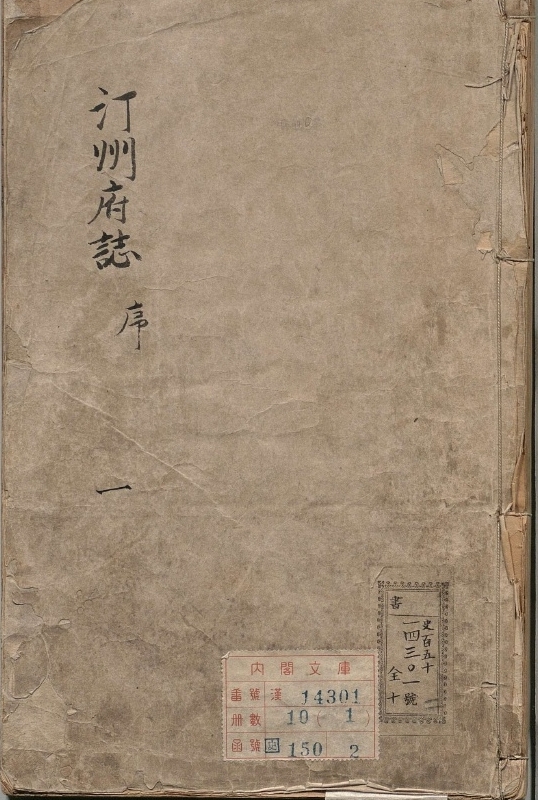 汀州府誌
序
一
書
史百五十
一四三〇一號
全十
內閣文庫
番號 漢 14301
册數 10(1)
函號 150 2